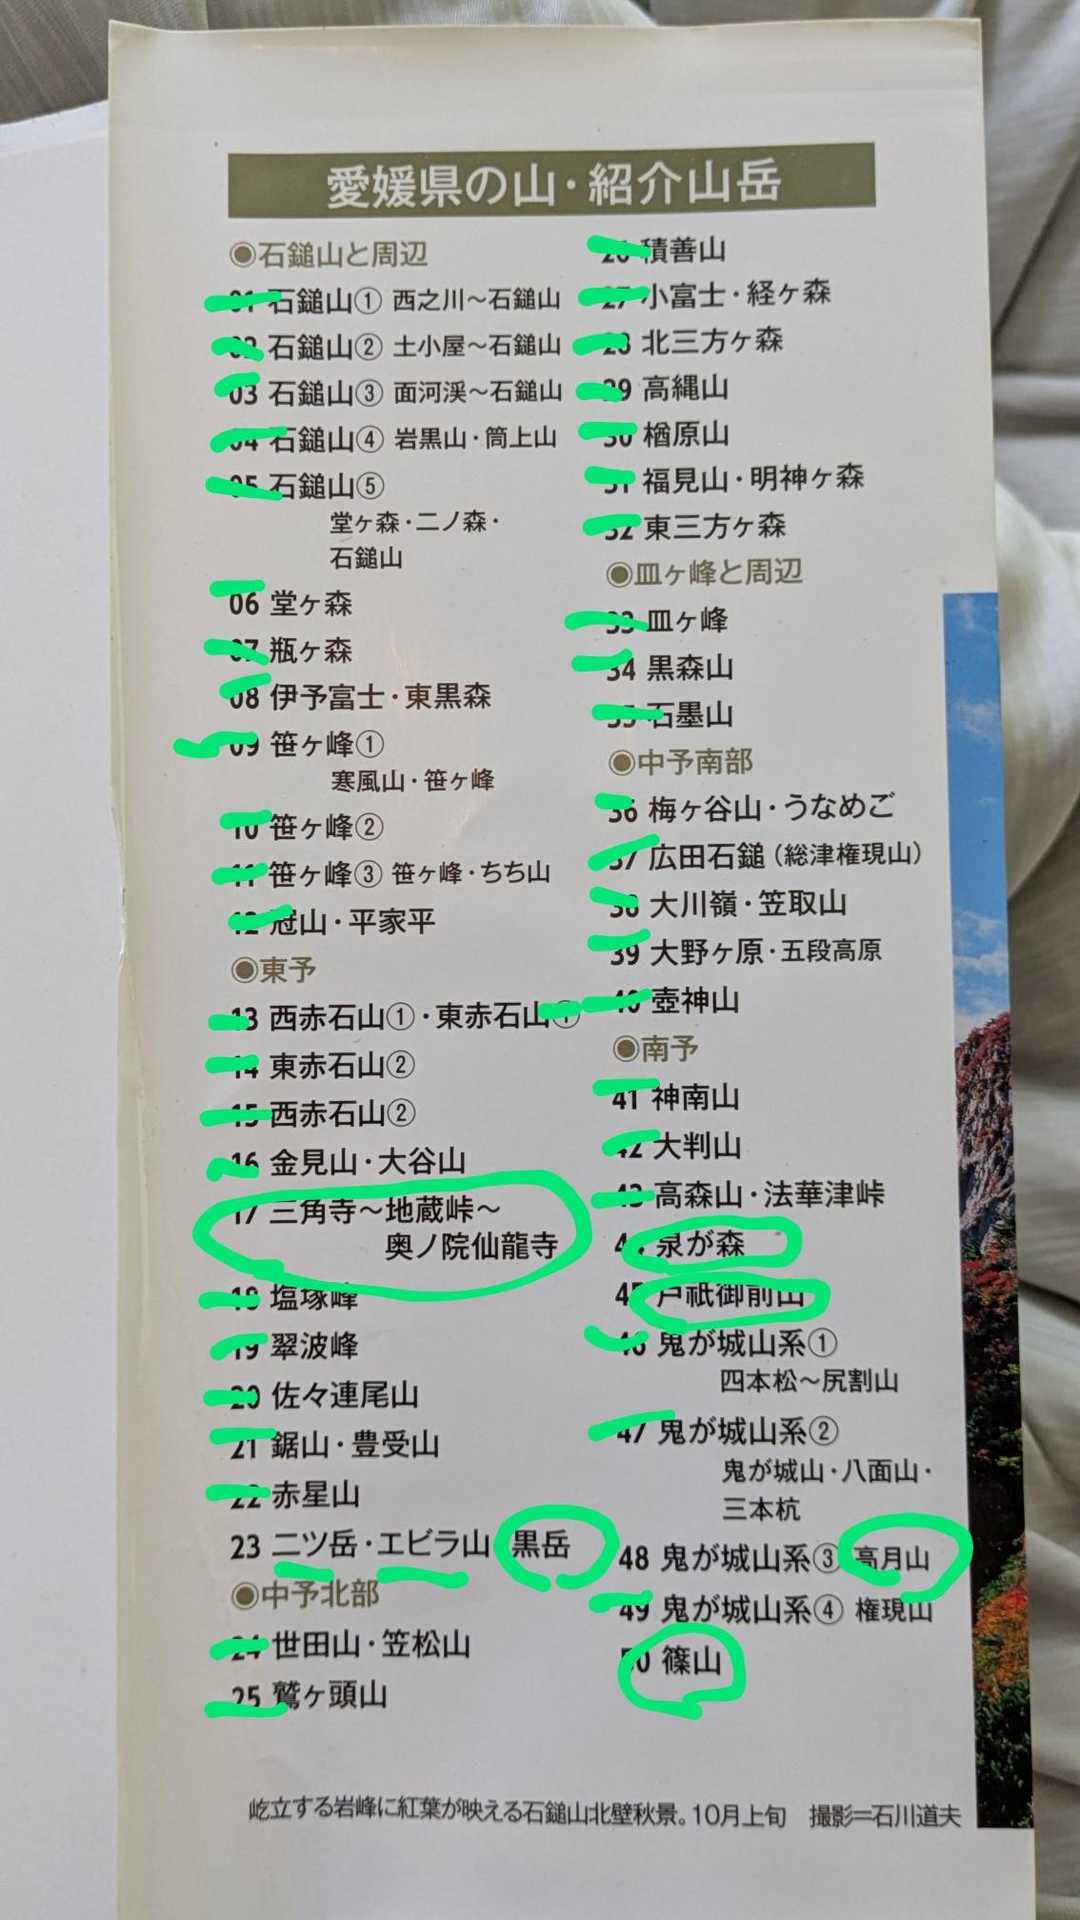 愛媛県の山・紹介山岳
◉石鎚山と周辺
01 石鎚山① 西之川～石鎚山
02 石鎚山② 土小屋～石鎚山
03 石鎚山③ 面河渓～石鎚山
04 石鎚山④ 岩黒山・筒上山
05 石鎚山⑤
堂ヶ森・二ノ森・
石鎚山
06 堂ヶ森
07 瓶ヶ森
08 伊予富士・東黒森
09 笹ヶ峰①
寒風山・笹ヶ峰
10 笹ヶ峰②
11 笹ヶ峰③ 笹ヶ峰・ちち山
12 冠山・平家平
◉東予
13 西赤石山①・東赤石山①
14 東赤石山②
15 西赤石山②
16 金見山・大谷山
17 三角寺～地蔵峠～
奥ノ院仙龍寺
18 塩塚峰
19 翠波峰
20 佐々連尾山
21 鋸山・豊受山
22 赤星山
23 二ツ岳・エビラ山 黒岳
◉中予北部
24 世田山・笠松山
25 鷲ヶ頭山
26 積善山
27 小富士・経ヶ森
28 北三方ヶ森
29 高縄山
30 楢原山
31 福見山・明神ヶ森
32 東三方ヶ森
◉皿ヶ峰と周辺
33 皿ヶ峰
34 黒森山
35 石墨山
◉中予南部
36 梅ヶ谷山・うなめご
37 広田石鎚（総津権現山）
38 大川嶺・笠取山
39 大野ヶ原・五段高原
40 壺神山
◉南予
41 神南山
42 大判山
43 高森山・法華津峠
44 泉が森
45 戸祇御前山
46 鬼が城山系①
四本松～尻割山
47 鬼が城山系②
鬼が城山・八面山・
三本杭
48 鬼が城山系③ 高月山
49 鬼が城山系④ 権現山
50 篠山
屹立する岩峰に紅葉が映える石鎚山北壁秋景。10月上旬　撮影＝石川道夫